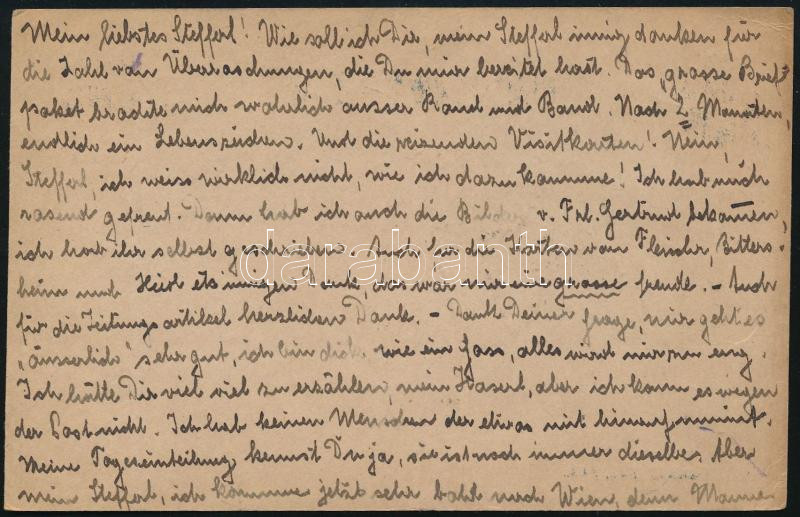 Mein liebstes Stefferl! Wie soll ich Dir, mein Stefferl innig danken für
die Zahl van Überaschungen, die Du mir bereitet hast. Das, grosse Brief-
paket brachte mich wahrlich ausser Rand und Band. Nach 2 Monaten,
endlich ein Lebenszeichen. Und die reizenden Visitkarten! Nein,
Stefferl, ich weiss wirklich nicht, wie ich dazu komme! Ich hab mich
rasend gefreut. Dann hab ich auch die Bilder v. Frl. Gertrud bekommen,
ich hab ihr selbst geschrieben. Auch für die Karten van Fleischr, Bitters-
heim und etz innigen Dank, das war mir eine grosse freude. - Auch
für die Zeitungsartikel herzlichen Dank. - Dank Deiner frage, mir geht es
"äusserlich" sehr gut, ich bin dick wie ein fass, alles wird mir zu eng.
Ich hätte Dir viel viel zu erzählen, mein Haserl, aber ich kann es wegen
der Post nicht. Ich hab keinen Menschen der etwas mit hinaufnimmt.
Meine Tageseinteilung kennst Du ja, sie ist noch immer dieselbe. Aber
mein Stefferl, ich komme jetzt sehr bald nach Wien, denn Mama
darabanth